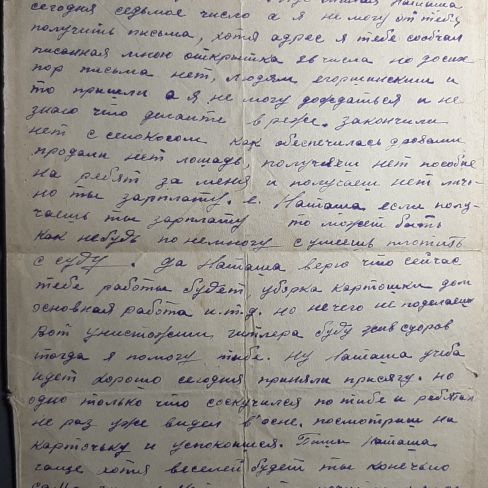 сегодня седьмое число а я не могу от тебя
получить письма, хотя адрес я тебе сообчал
писанная мною открытка числа но до сих
пор письма нет, людям егоршинским и
то пришли а я не могу дождаться и не
знаю что делаите в реже. закончили
нет с сенокосом как обеспечилась дровами
продали нет лошадь, получаем нет пособие
на ребят за меня и получаем нет лич-
но ты зарплату. е. Наташа если полу-
чаешь ты зарплату то может быть
как небудь по немногу сумеешь плотить
ссуду. да Наташа верю что сейчас
тебе работы будет уборка картошки дом
основная работа и.т.д. но нечего не поделаеш
вот уничтожим гитлера буду жив здоров
тогда я помогу тибе. Ну Наташа учеба
идет хорошо сегодня приняли присягу. но
одно только что соскучился по тибе и ребятах
не раз уже видел в'осне. посмотриш на
карточьку и успокоишся. Пиши Наташа
чаще хотя веселей будет ты конечьно